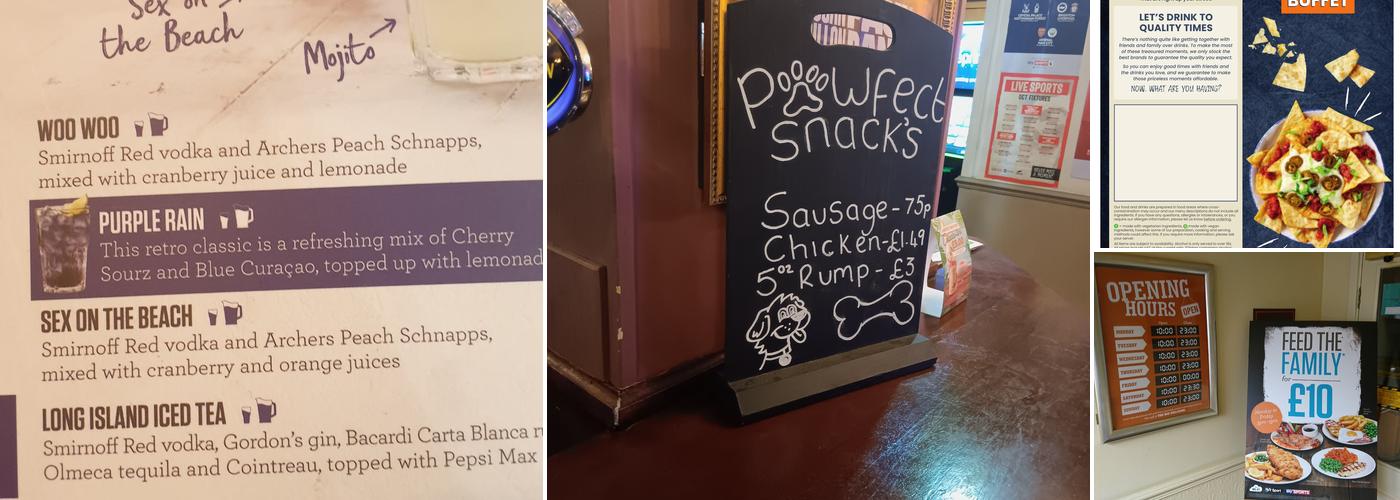 Sex on
the Beach
Mojito
WOO WOO
Smirnoff Red vodka and Archers Peach Schnapps,
mixed with cranberry juice and lemonade
PURPLE RAIN
This retro classic is a refreshing mix of Cherry
Sourz and Blue Curaçao, topped up with lemonad
SEX ON THE BEACH
Smirnoff Red vodka and Archers Peach Schnapps,
mixed with cranberry and orange juices
LONG ISLAND ICED TEA
Smirnoff Red vodka, Gordon's gin, Bacardi Carta Blanca r
Olmeca tequila and Cointreau, topped with Pepsi Max
Pawfect
Snack's
Sausage - 75p
Chicken - £1.49
5oz Rump - £3
LIVE SPORTS
OCT FIXTURES
BUFFET
LET'S DRINK TO
QUALITY TIMES
There's nothing quite like getting together with
friends and family over drinks. To make the most
of these treasured moments, we only stock the
best brands to guarantee the quality you expect.
So you can enjoy good times with friends and
the drinks you love, and we guarantee to make
those priceless moments affordable.
NOW, WHAT ARE YOU HAVING?
OPENING
HOURS
OPEN
MONDAY 10:00 23:00
TUESDAY 10:00 23:00
WEDNESDAY 10:00 23:00
THURSDAY 10:00 23:00
FRIDAY 10:00 00:00
SATURDAY 10:00 23:30
SUNDAY 10:00 23:00
FEED THE
FAMILY
for
£10
Monday to
Friday